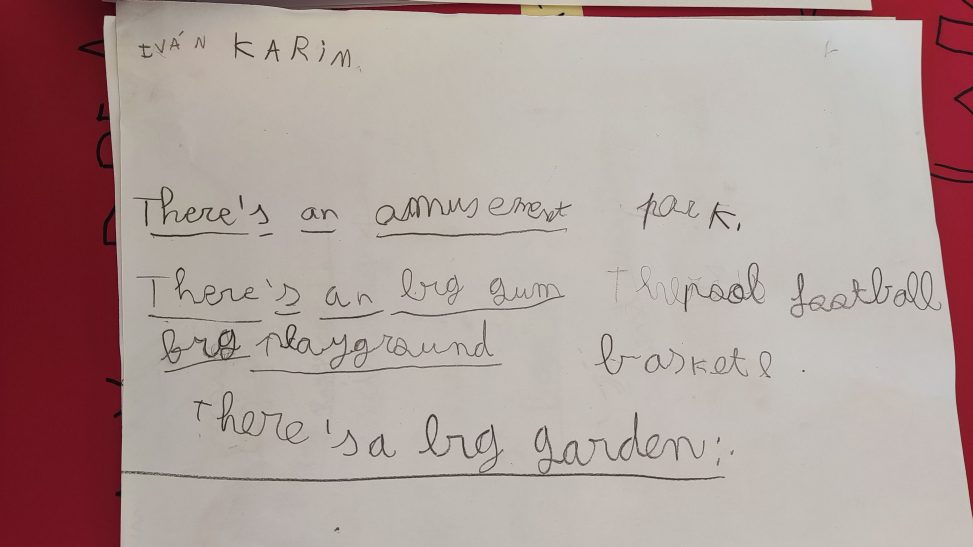 IVÁN KARIM.
There's an amusement park.
There's an big gum The pool football
big playground basket
There's a big garden:.